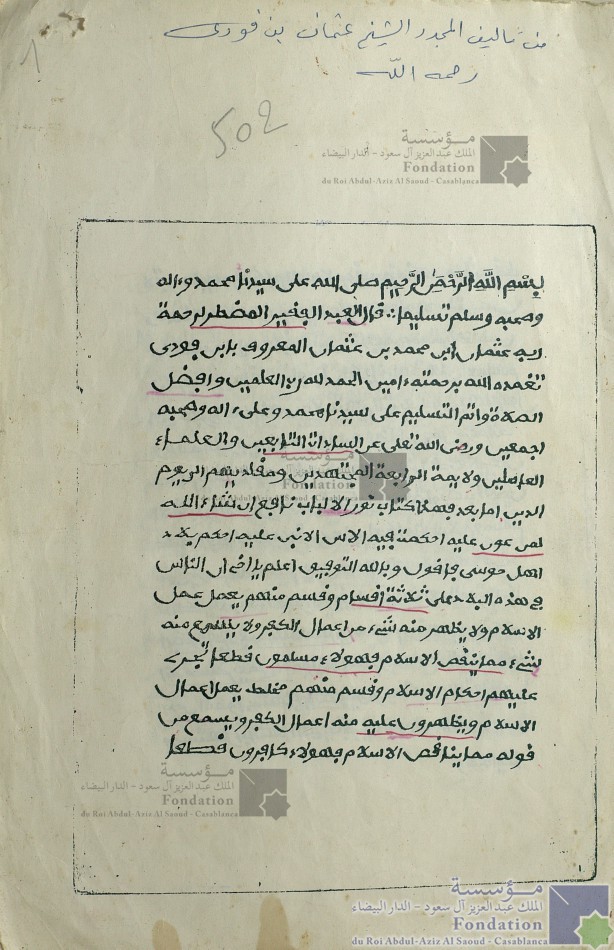 من تاليف المجدد الشيخ عثمان بن فودى
رحمه الله
1
502
مؤسسة
الملك عبد العزيز آل سعود - الدار البيضاء
Fondation
du Roi Abdul-Aziz Al Saoud - Casablanca
بسم الله الرحمن الرحيم صلى الله على سيدنا محمد وءاله
وصحبه وسلم تسليما قال العبد الفقير المضطر لرحمة
ربه عثمان ابن محمد بن عثمان المعروف بابن فودى
تغمده الله برحمته ءامين الحمد لله رب العلمين وافضل
الصلاة واتم التسليم على سيدنا محمد وعلى ءاله وصحبه
اجمعين ورضى الله تعلى عن السادات التابعين والعلماء
العاملين والايمة الاربعة المجتهدين ومقلديهم الى يوم
الدين اما بعد فهذا كتاب نور الالباب نافع ان شاء الله
لمن عول عليه
اهل حوسى فاقول وبالله التوفيق اعلم يا اخى ان الناس
فى هذه البلاد على ثلاثة اقسام وقسم منهم يعمل عمل
الاسلام ولا يظهر منه شىء من اعمال الكفر ولا يسمع منه
شىء مما يناقض الاسلام فهولاء مسلمون قطعا تجرى
عليهم احكام الاسلام وقسم منهم مخلط يعمل اعمال
الاسلام ويظهرون عليه منه اعمال الكفر ويسمع من
قوله مما يناقض الاسلام فهولاء كافرون قطعا
مؤسسة
الملك عبد العزيز آل سعود - الدار البيضاء
Fondation
du Roi Abdul-Aziz Al Saoud - Casablanca
مؤسسة
الملك عبد العزيز آل سعود - الدار البيضاء
Fondation
du Roi Abdul-Aziz Al Saoud - Casablanca